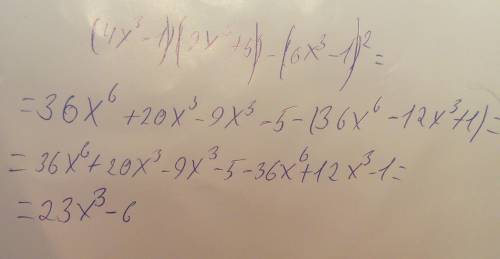 (4x³-1)(9x³+5)-(6x³-1)²=
=36x⁶+20x³-9x³-5-(36x⁶-12x³+1)=
=36x⁶+20x³-9x³-5-36x⁶+12x³-1=
=23x³-6